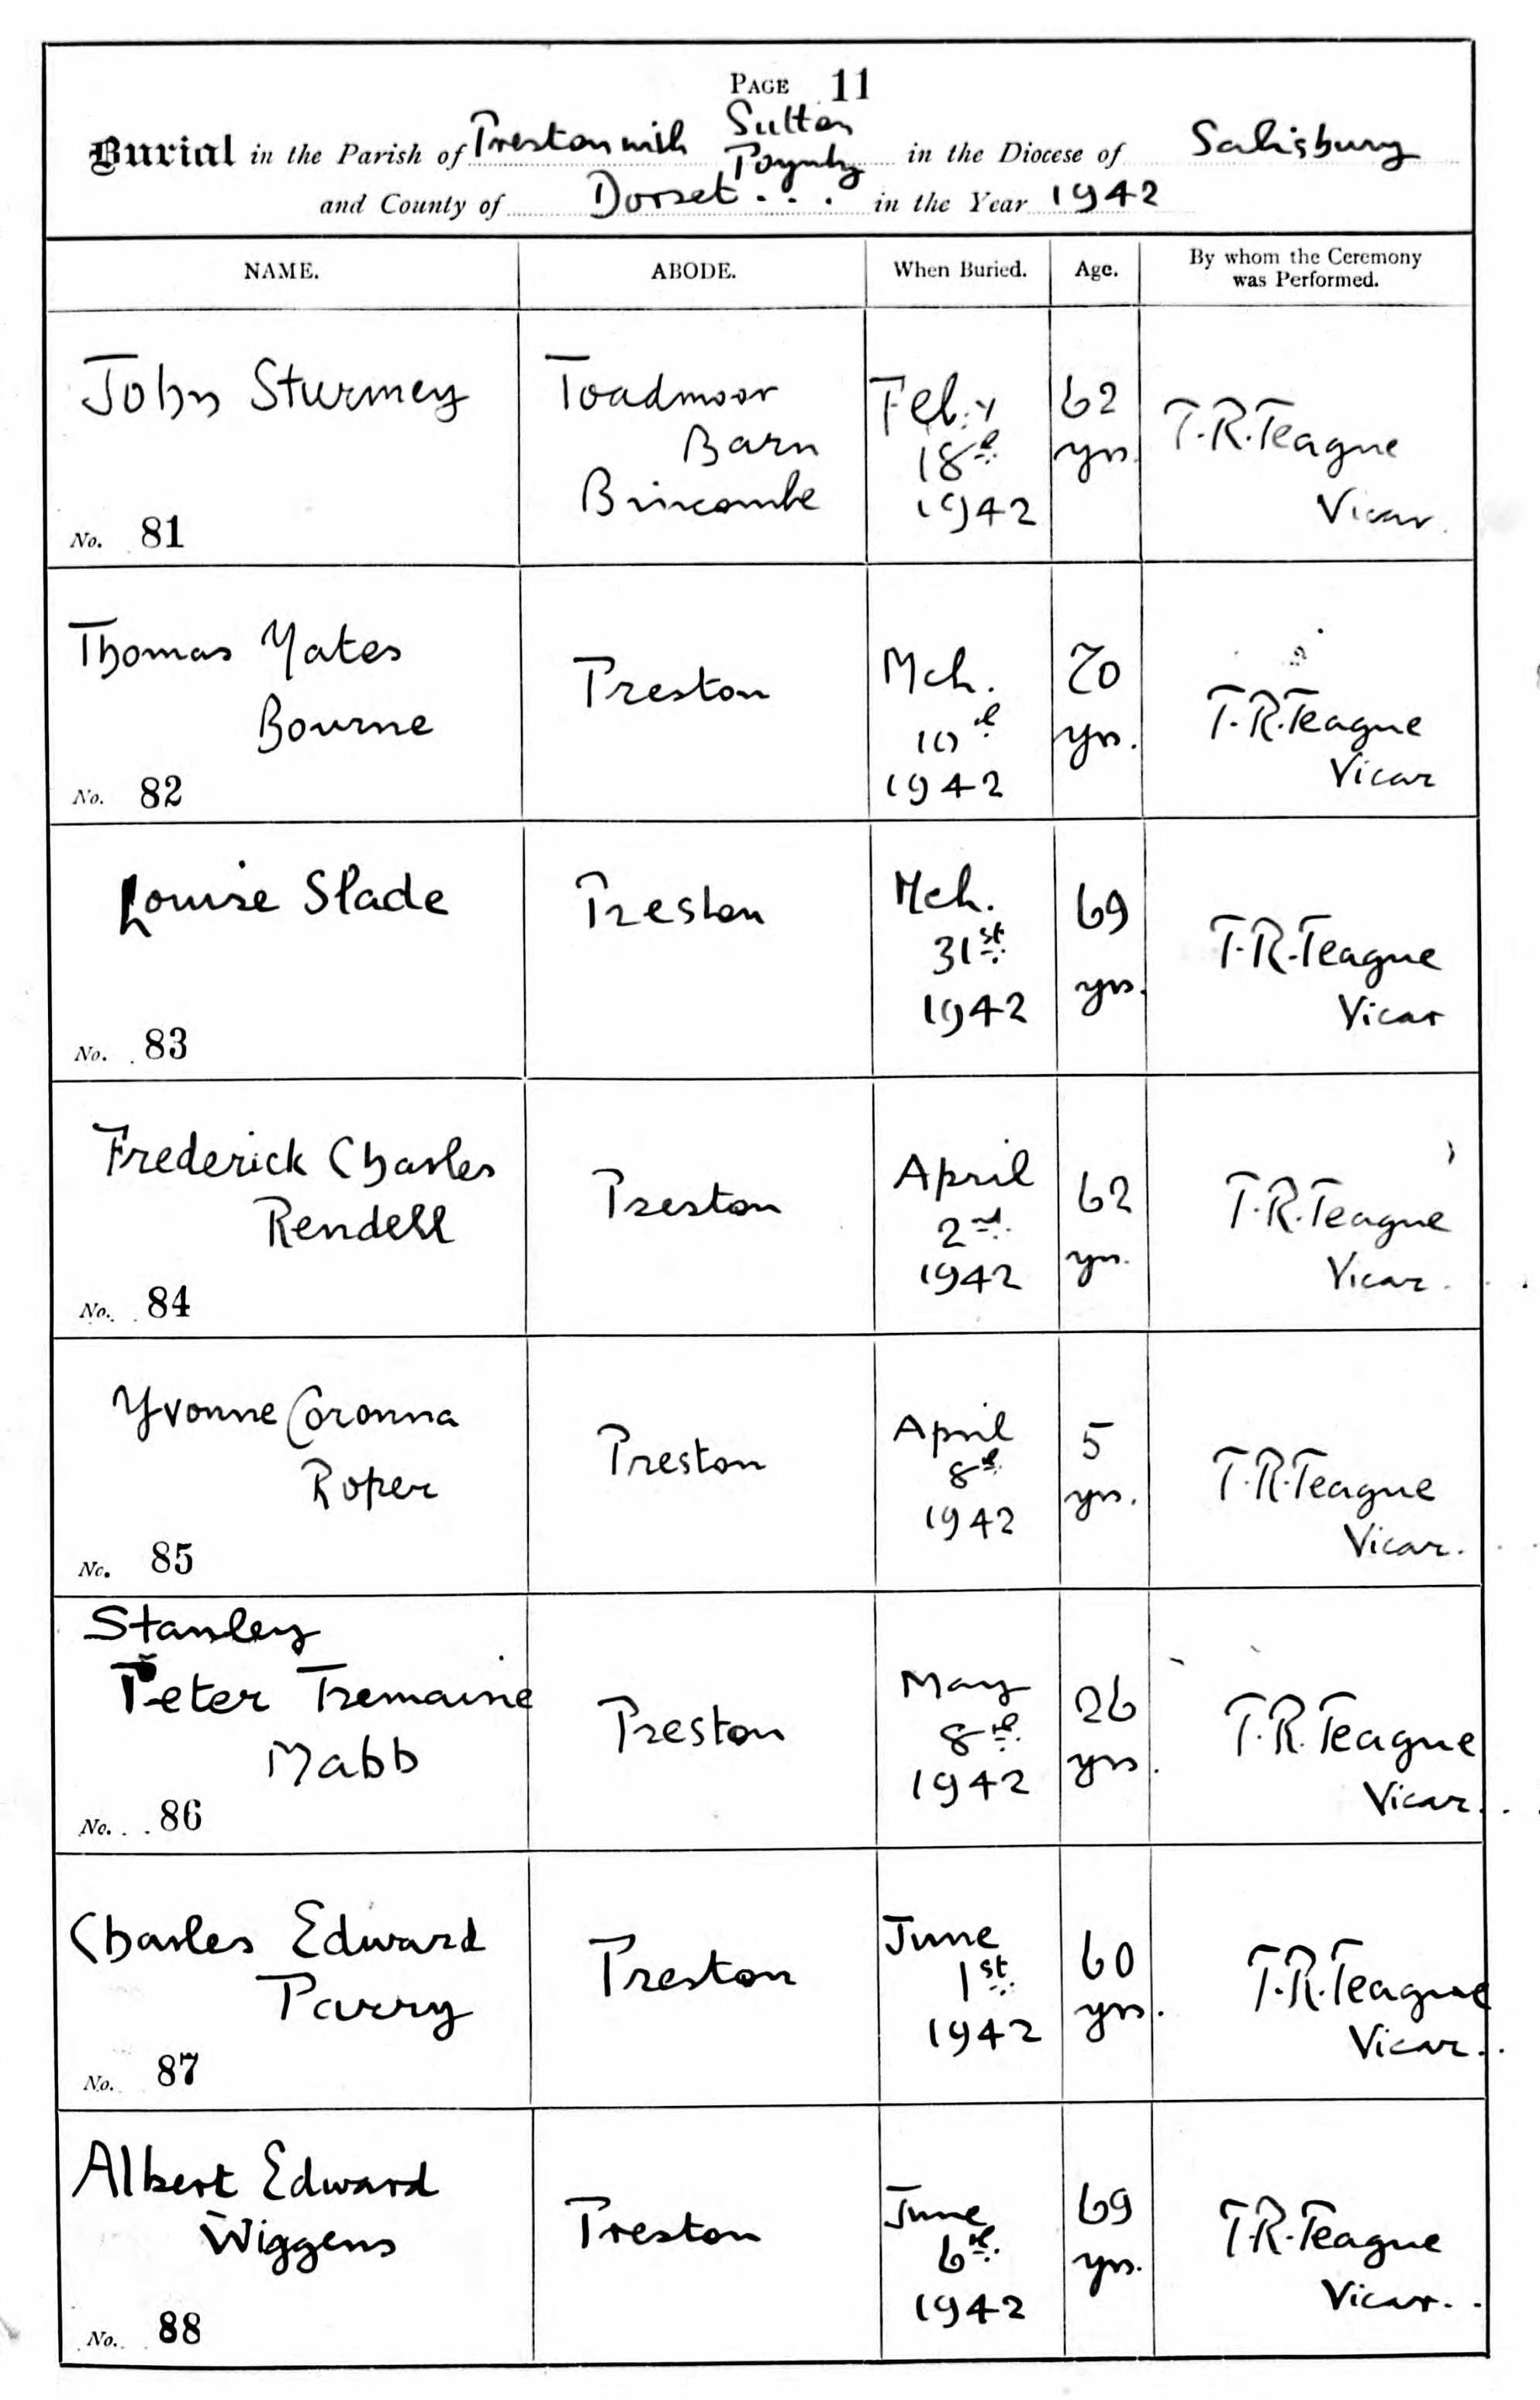 PAGE 11
Burial in the Parish of Preston with Sutton Poyntz in the Diocese of Salisbury
and County of Dorset . . . in the Year 1942
NAME. ABODE. When Buried. Age. By whom the Ceremony was Performed.
John Sturmey
No. 81
Toadmoor
Barn
Brincombe
Feb.y
18th
1942
62
yrs.
T.R.Teague
Vicar.
Thomas Yates
Bourne
No. 82
Preston
Mch.
10th
1942
70
yrs.
T.R.Teague
Vicar
Louise Slade
No. 83
Preston
Mch.
31st
1942
69
yrs.
T.R.Teague
Vicar
Frederick Charles
Rendell
No. 84
Preston
April
2nd
1942
62
yrs.
T.R.Teague
Vicar.
Yvonne Coronna
Roper
No. 85
Preston
April
8th
1942
5
yrs.
T.R.Teague
Vicar.
Stanley
Peter Tremaine
Mabb
No. 86
Preston
May
8th
1942
26
yrs.
T.R.Teague
Vicar.
Charles Edward
Parry
No. 87
Preston
June
1st
1942
60
yrs.
T.R.Teague
Vicar.
Albert Edward
Wiggens
No. 88
Preston
June
6th
1942
69
yrs.
T.R.Teague
Vicar.